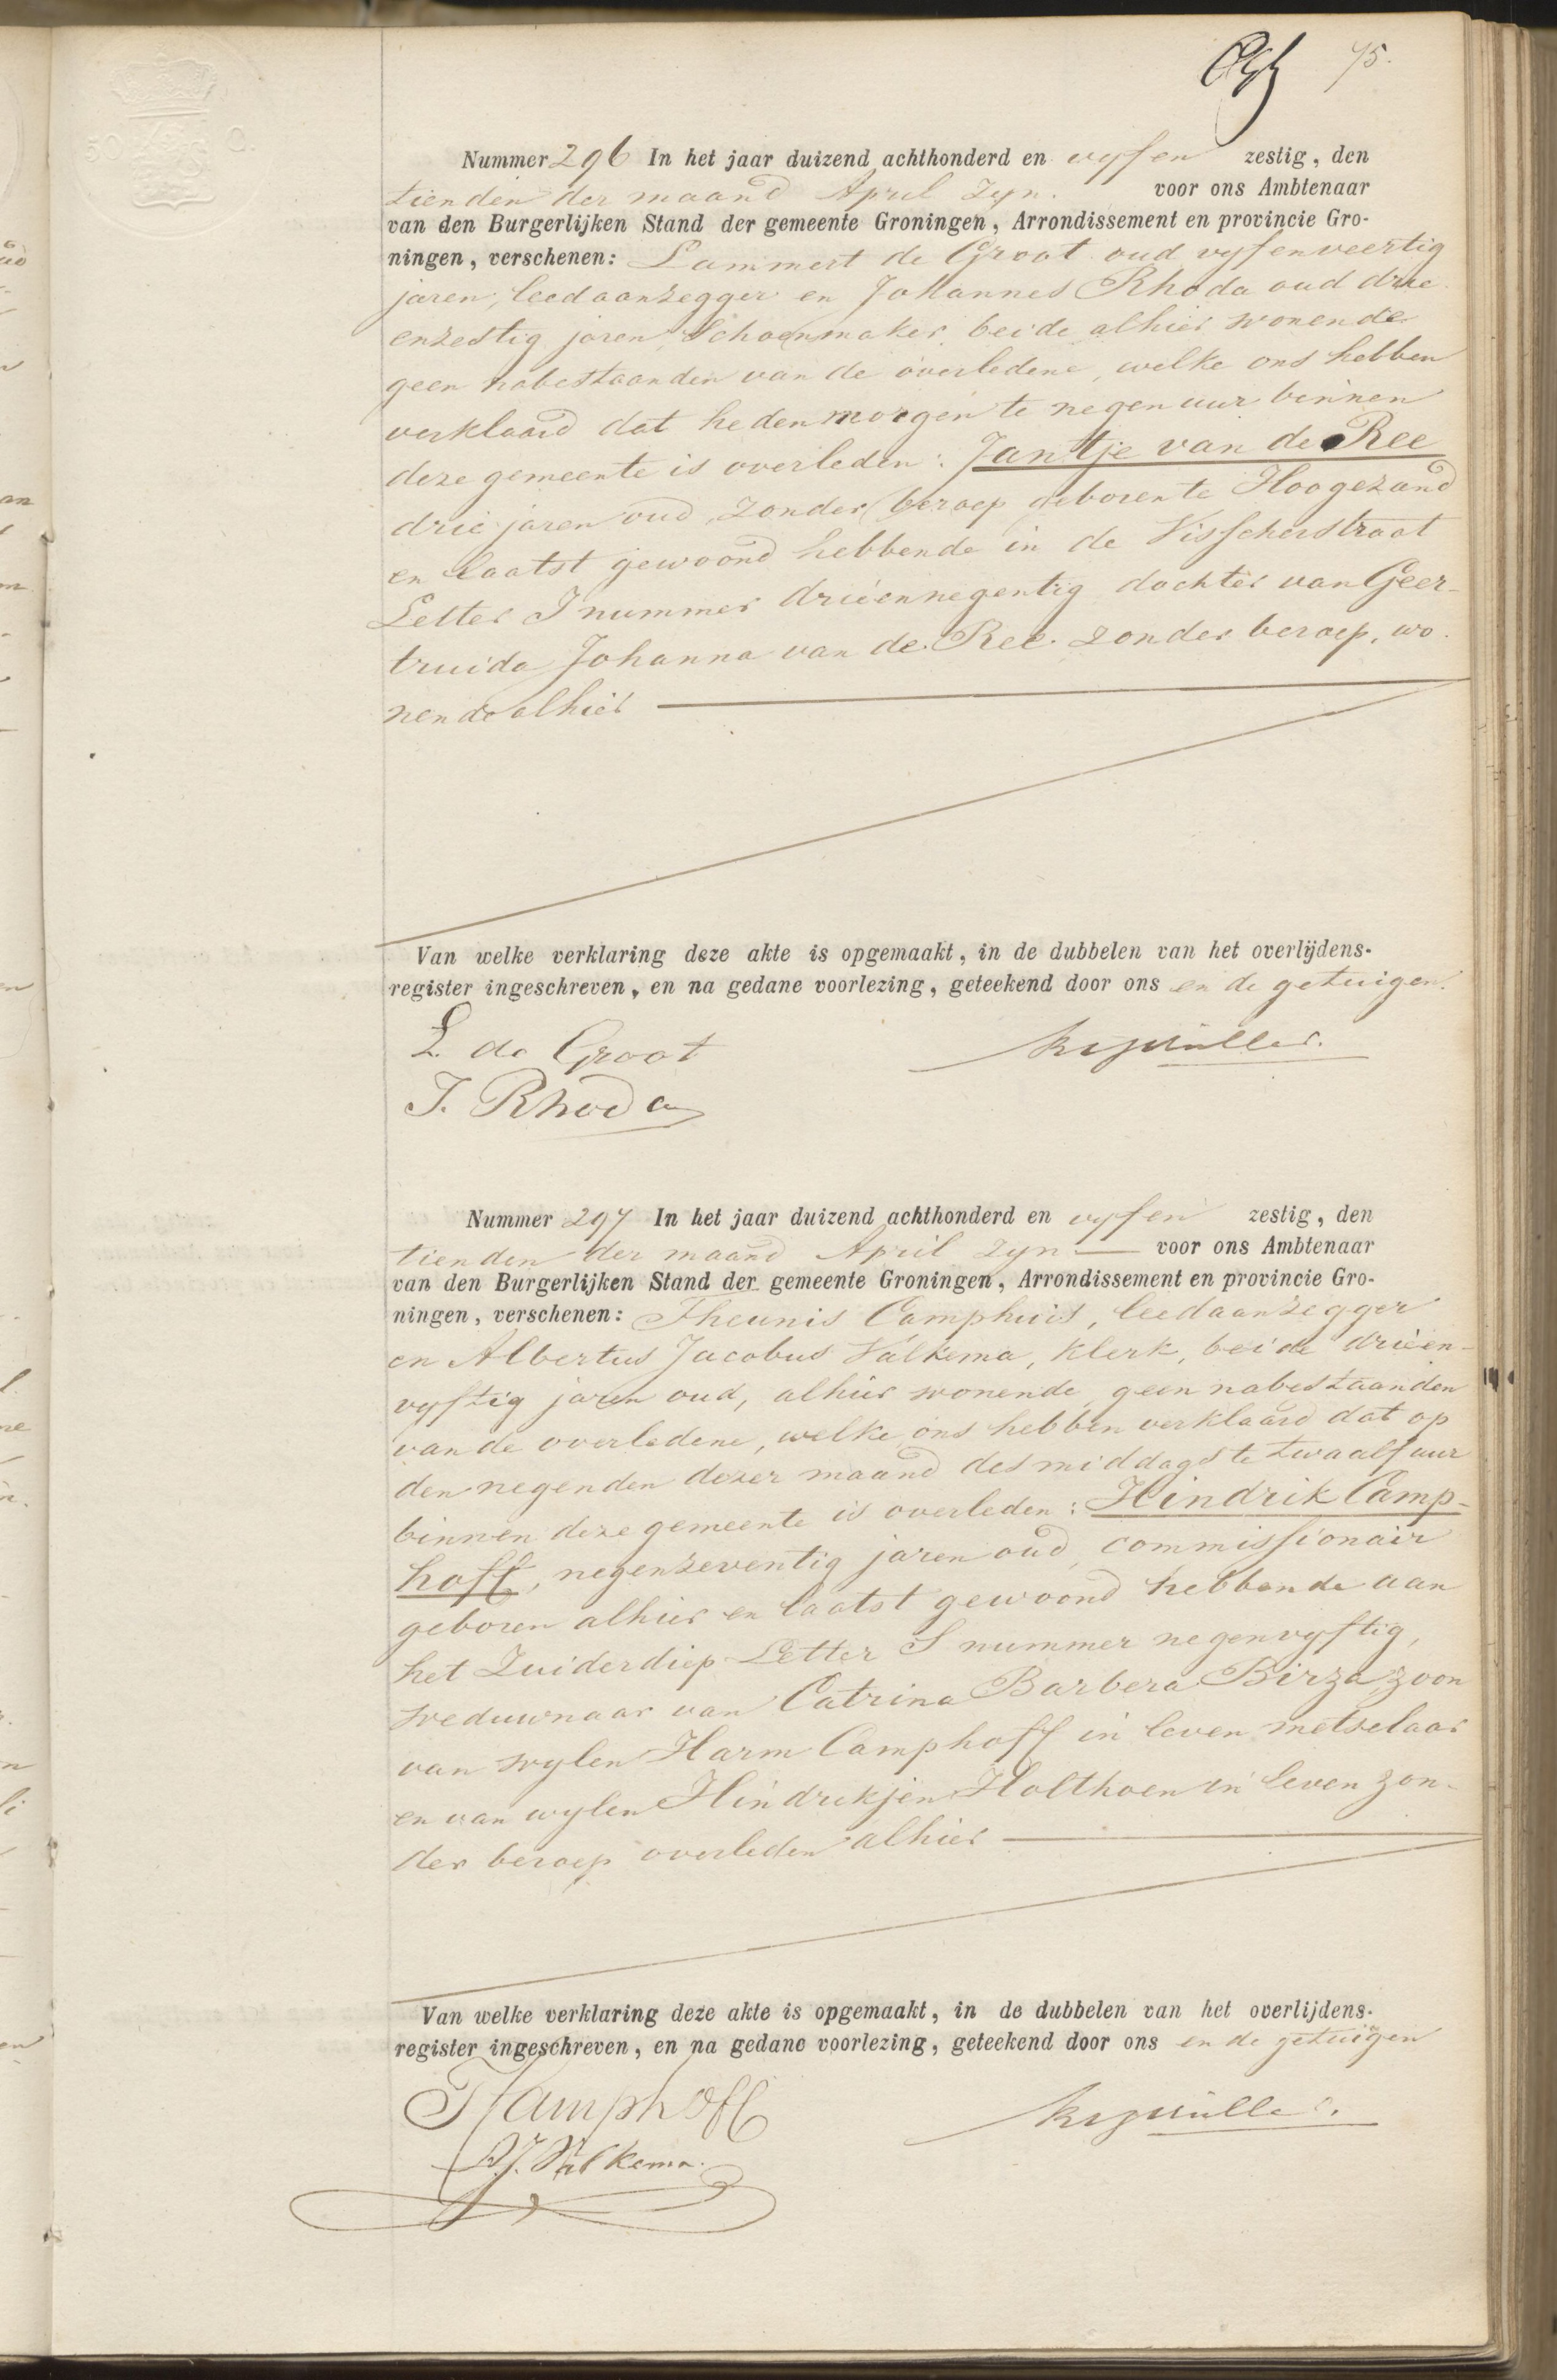 75.
Nummer 296 In het jaar duizend achthonderd en vyfen zestig, den
tienden der maand April zyn. voor ons Ambtenaar
van den Burgerlijken Stand der gemeente Groningen, Arrondissement en provincie Gro-
ningen, verschenen: Lammert de Groot oud vyfenveertig
jaren, leedaanzegger en Johannes Rhoda oud drie
enzestig jaren Schoenmaker, beide alhier wonende
geen nabestaanden van de overledene, welke ons hebben
verklaard dat heden morgen te negen uur binnen
deze gemeente is overleden: Jantje van de Ree
drie jaren oud, zonder beroep geboren te Hoogezand
en laatst gewoond hebbende in de Visscherstraat
Letter I nummer drieënnegentig dochter van Geer-
truida Johanna van de Ree. zonder beroep, wo-
nende alhier
Van welke verklaring deze akte is opgemaakt, in de dubbelen van het overlijdens-
register ingeschreven, en na gedane voorlezing, geteekend door ons en de getuigen.
L. de Groot
J. Rhoda
Nummer 297 In het jaar duizend achthonderd en vyfen zestig, den
tienden der maand April zyn voor ons Ambtenaar
van den Burgerlijken Stand der gemeente Groningen, Arrondissement en provincie Gro-
ningen, verschenen: Theunis Camphuis, leedaanzegger
en Albertus Jacobus Valkema, klerk, beide drieën-
vyftig jaren oud, alhier wonende, geen nabestaanden
van de overledene, welke ons hebben verklaard dat op
den negenden dezer maand des middags te twaalf uur
binnen deze gemeente is overleden: Hindrik Camp-
hoff, negenzeventig jaren oud, commissionair
geboren alhier en laatst gewoond hebbende aan
het Zuiderdiep Letter S nummer negenvyftig,
weduwnaar van Catrina Barbera Birza, zoon
van wylen Harm Camphoff in leven metselaar
en van wylen Hindrikjen Holthoen in leven zon-
der beroep overleden alhier
Van welke verklaring deze akte is opgemaakt, in de dubbelen van het overlijdens-
register ingeschreven, en na gedane voorlezing, geteekend door ons en de getuigen
A. J. Valkema.